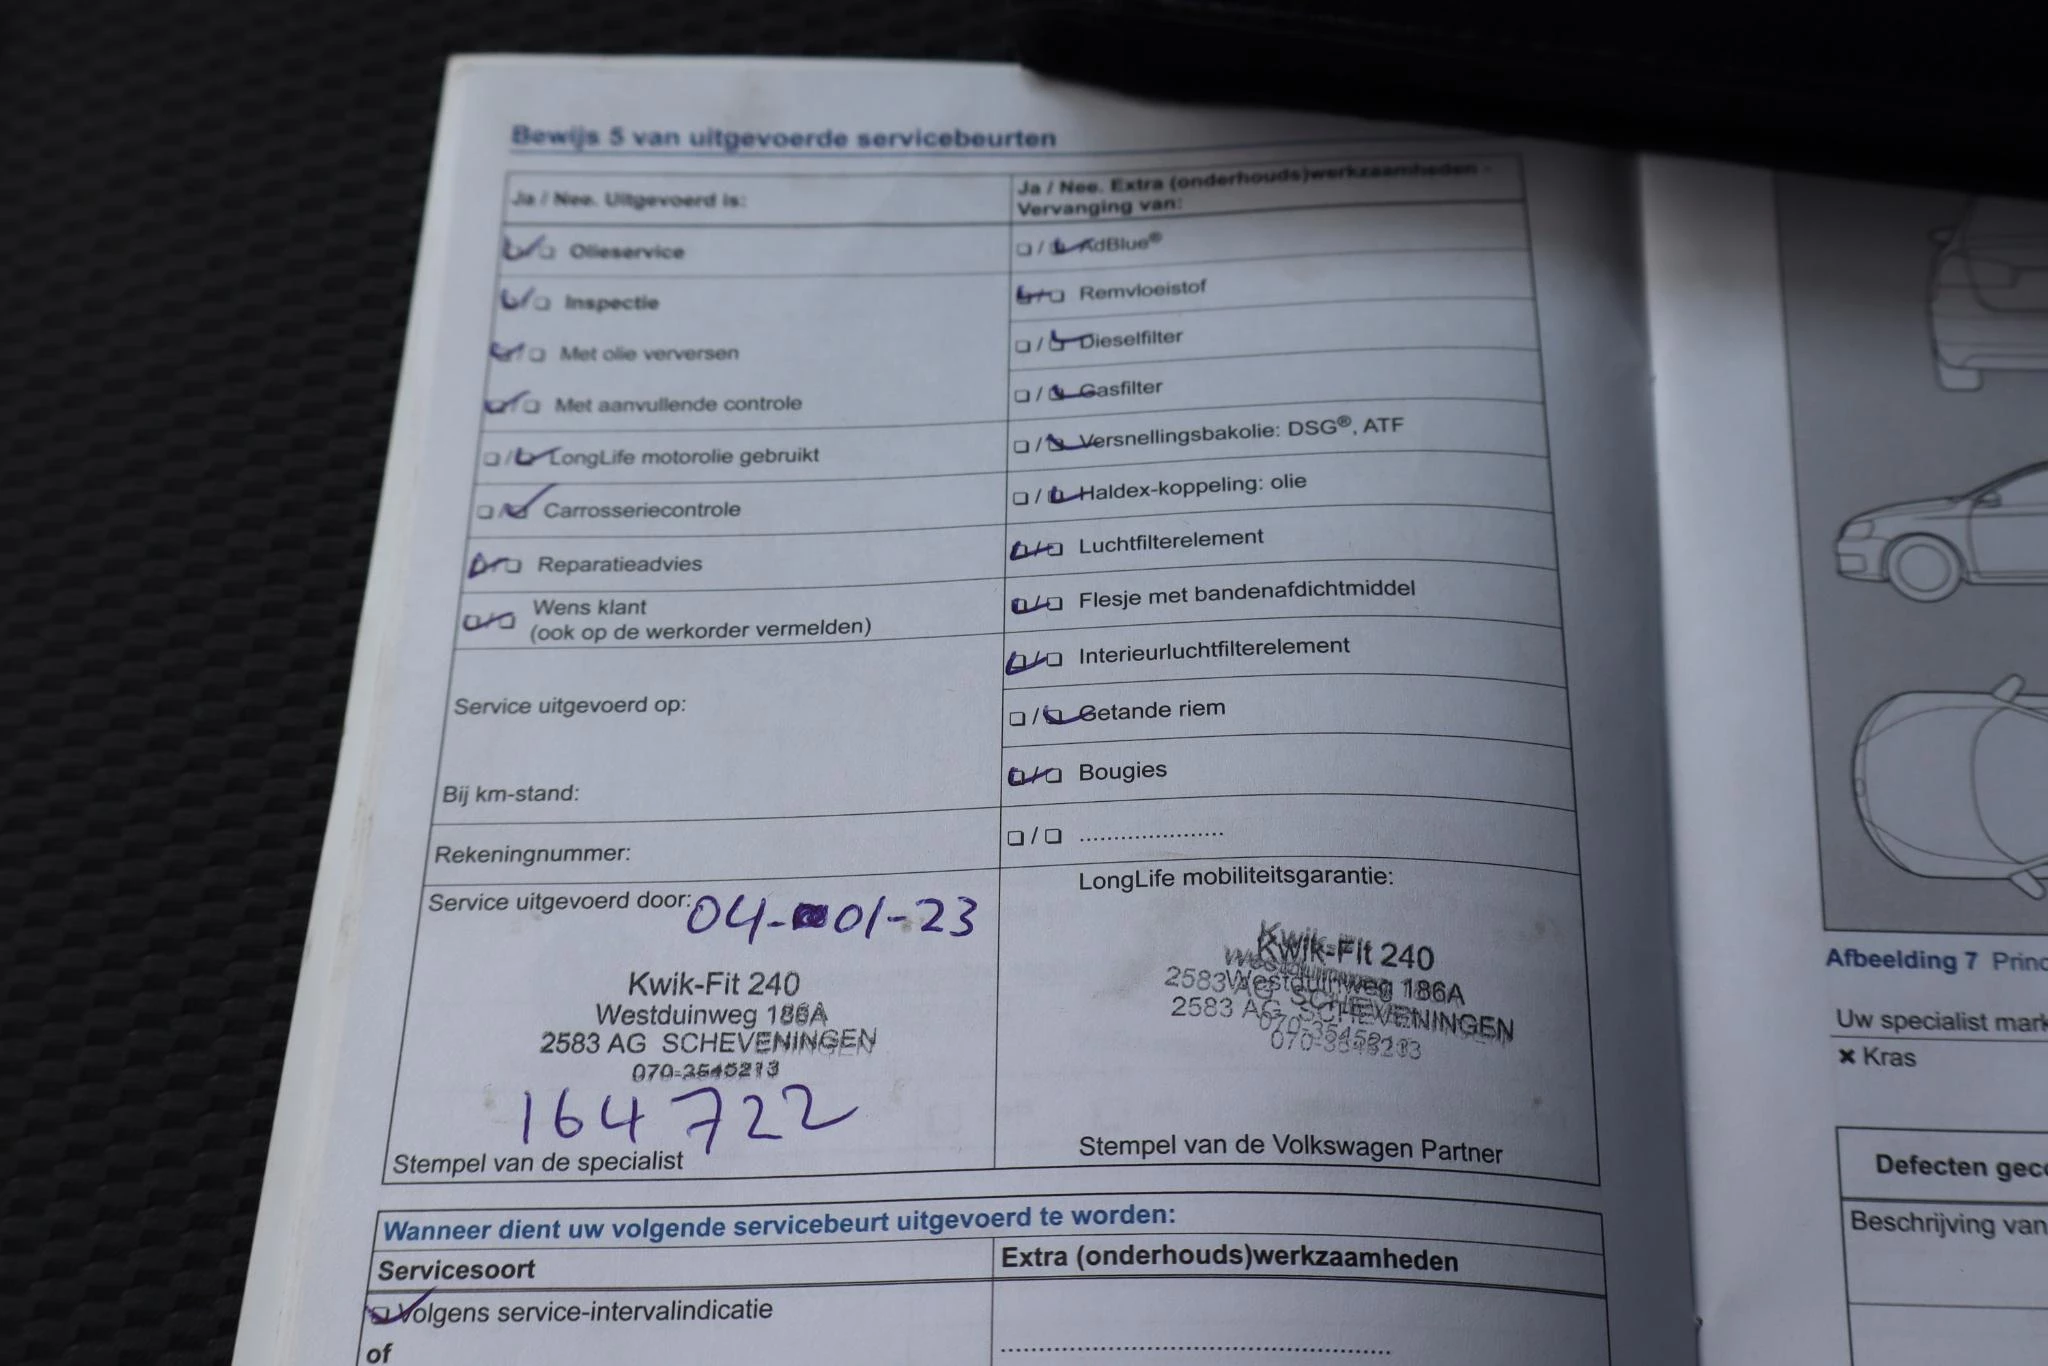 Bewijs 5 van uitgevoerde servicebeurten
Ja / Nee. Uitgevoerd is:
Olieservice
Inspectie
Met olie verversen
Met aanvullende controle
LongLife motorolie gebruikt
Carrosseriecontrole
Reparatieadvies
Wens klant
(ook op de werkorder vermelden)
Service uitgevoerd op:
Bij km-stand:
Rekeningnummer:
Service uitgevoerd door: 04-01-23
Kwik-Fit 240
Westduinweg 186A
2583 AG SCHEVENINGEN
164722
Stempel van de specialist
Ja / Nee. Extra (onderhouds)werkzaamheden -
Vervanging van:
AdBlue®
Remvloeistof
Dieselfilter
Gasfilter
Versnellingsbakolie: DSG®, ATF
Haldex-koppeling: olie
Luchtfilterelement
Flesje met bandenafdichtmiddel
Interieurluchtfilterelement
Getande riem
Bougies
LongLife mobiliteitsgarantie:
Kwik-Fit 240
Westduinweg 186A
2583 AG SCHEVENINGEN
Stempel van de Volkswagen Partner
Wanneer dient uw volgende servicebeurt uitgevoerd te worden:
Servicesoort
Extra (onderhouds)werkzaamheden
Volgens service-intervalindicatie
of
Afbeelding 7
Uw specialist
Kras
Defecten
Beschrijving van